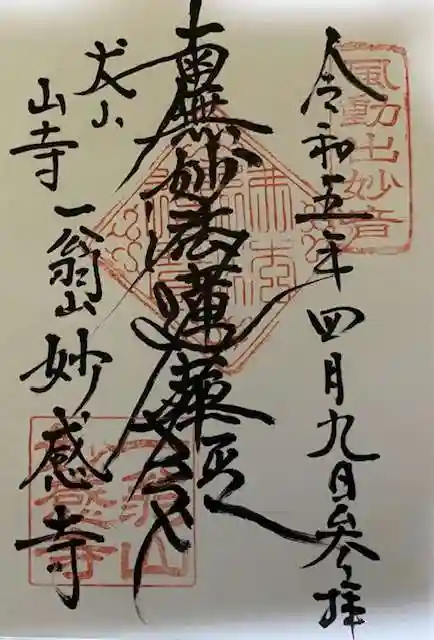 風動出妙音
令和五年四月九日参拝
南無妙法蓮華経
犬山
山寺
一翁山
妙感寺
一翁山
妙感寺